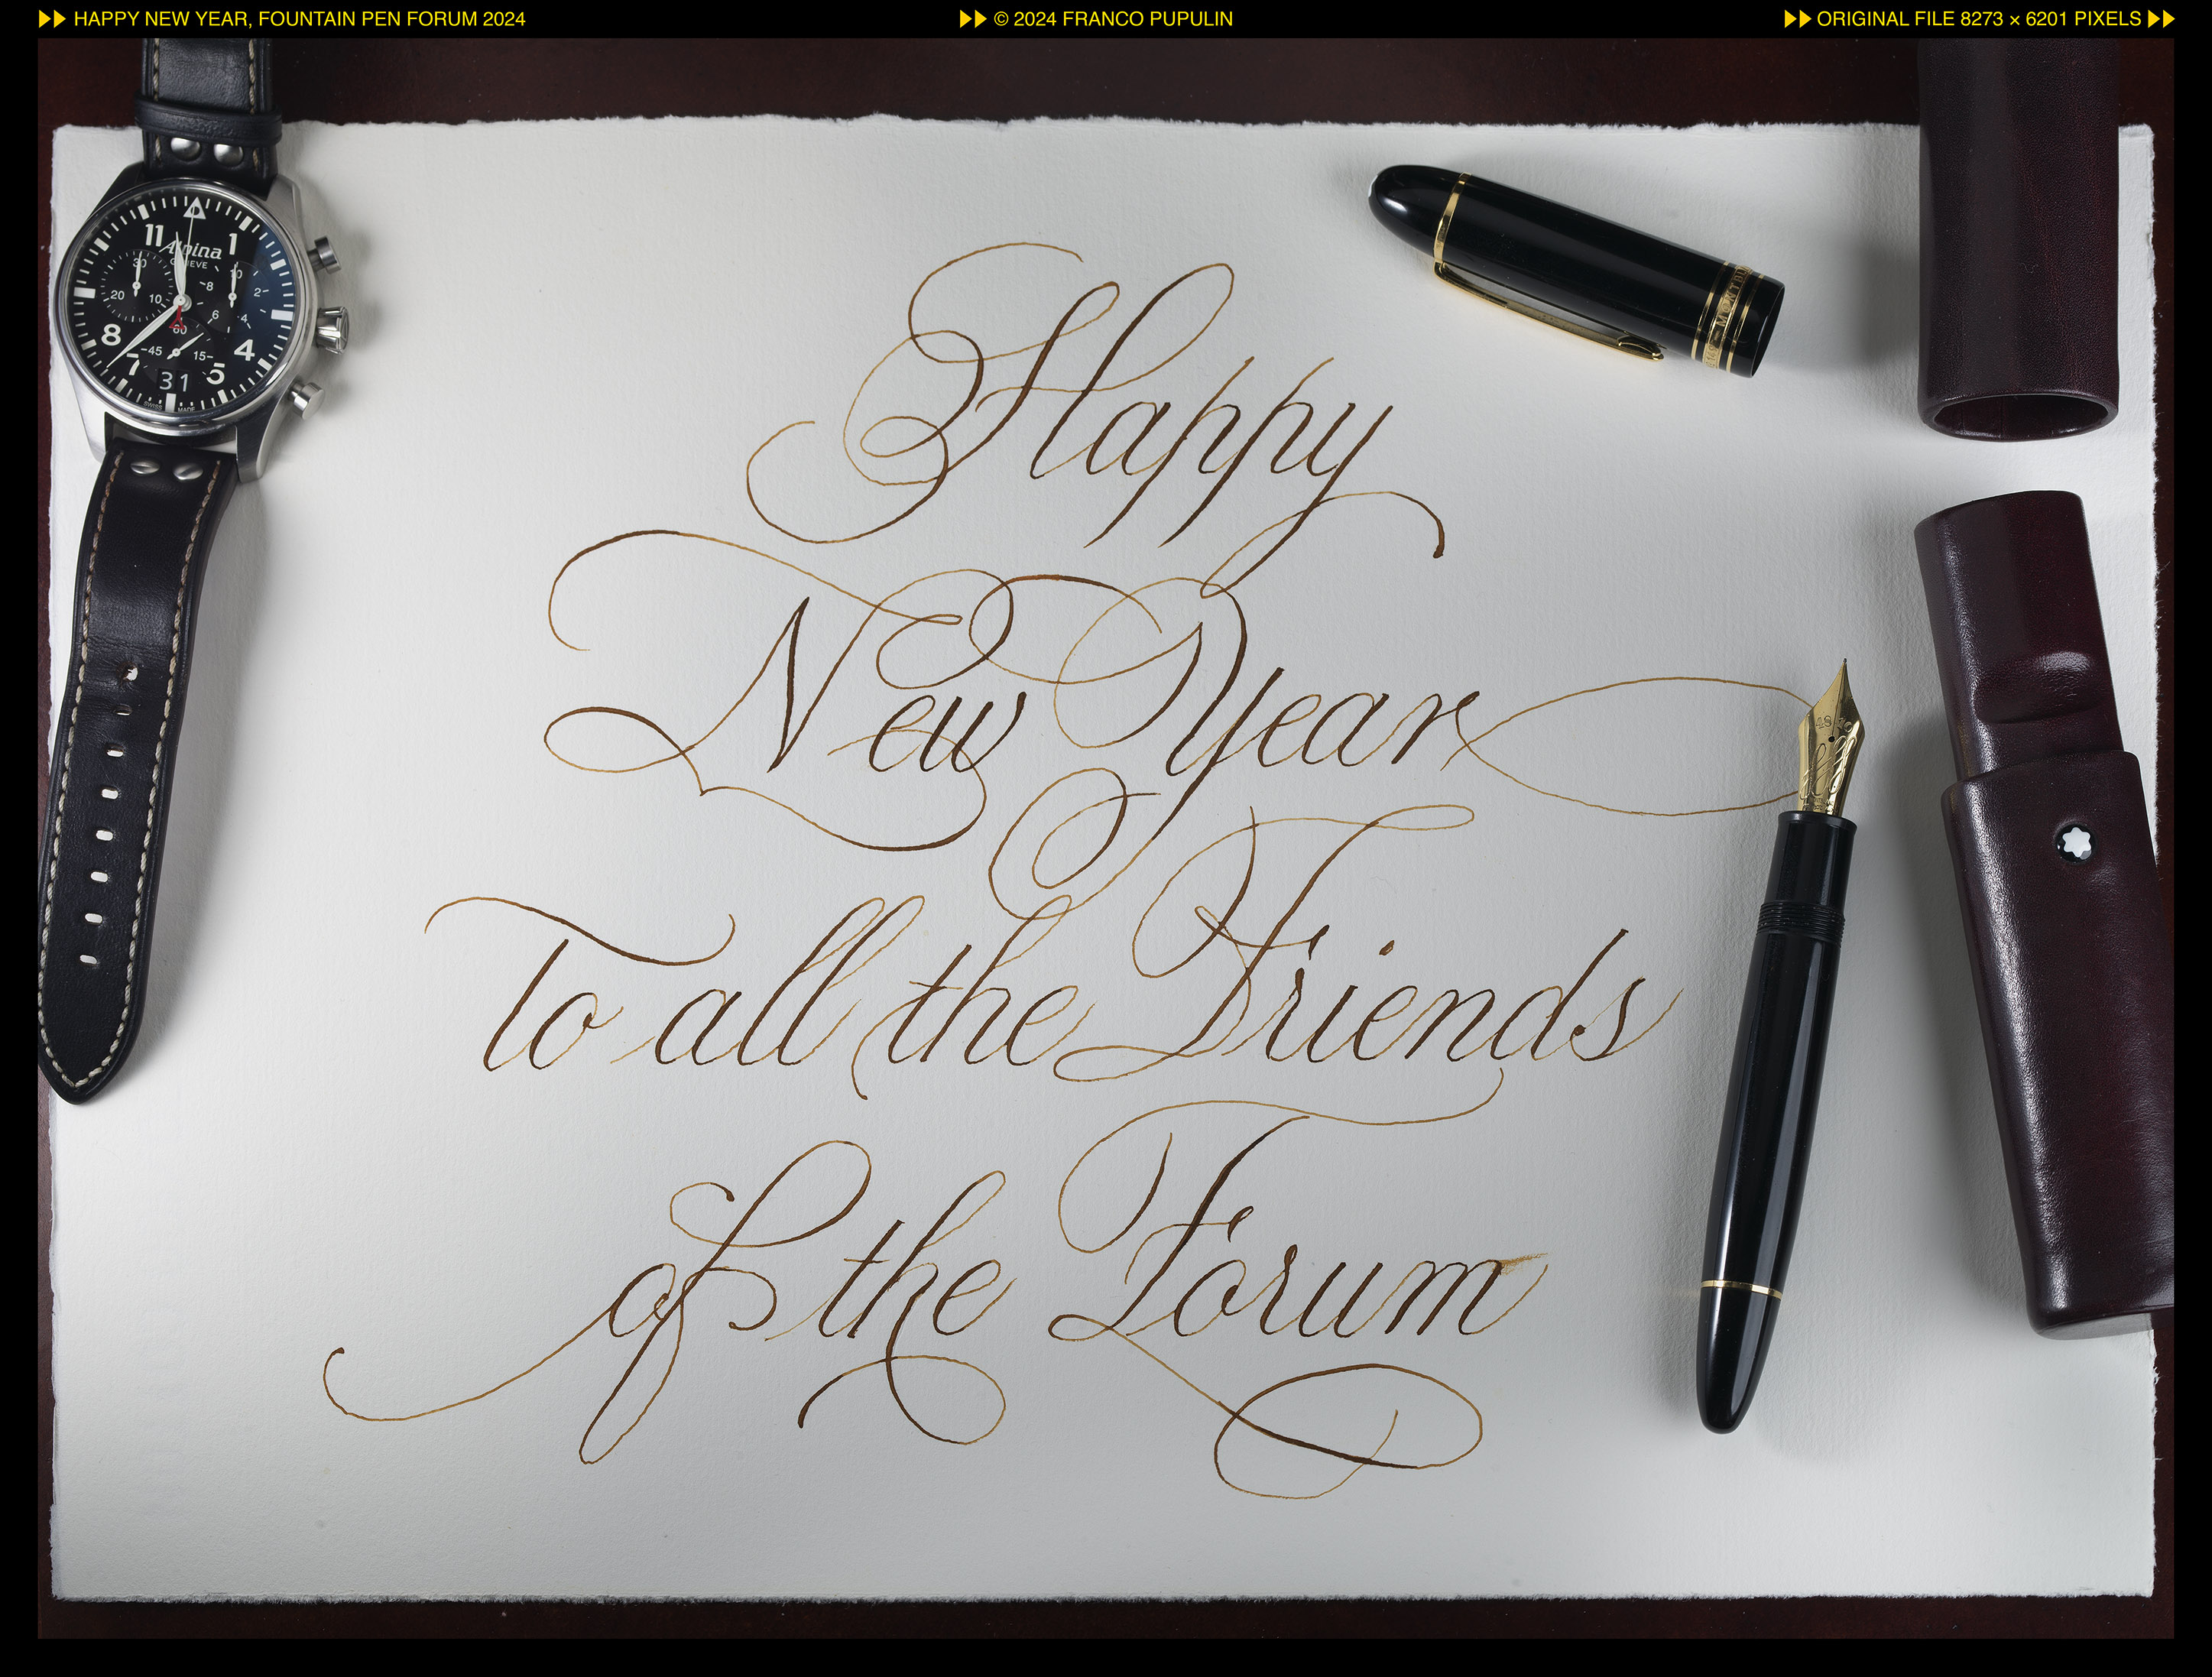 HAPPY NEW YEAR, FOUNTAIN PEN FORUM 2024
© 2024 FRANCO PUPULIN
ORIGINAL FILE 8273 × 6201 PIXELS
11 1
Alpina
GENEVE
30 10
8 2
20 10 6 4
60
8 4
45 15
7 5
31
SWISS MADE
MONTBL
4810
Happy
New Year
To all the Friends
of the Forum